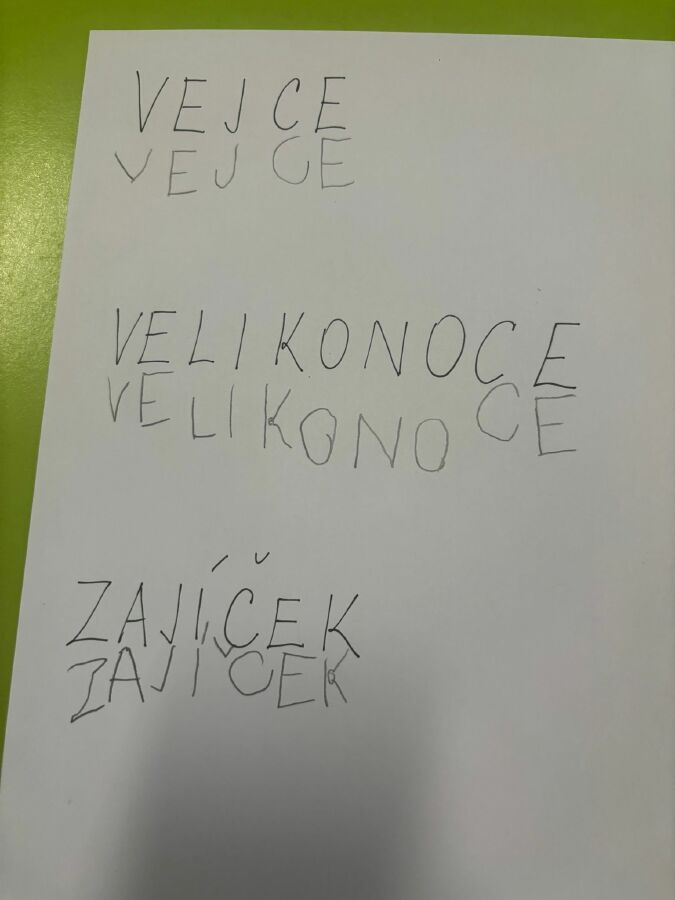 VEJCE
VEJCE
VELIKONOCE
VELIKONOCE
ZAJÍČEK
ZAJÍČEK